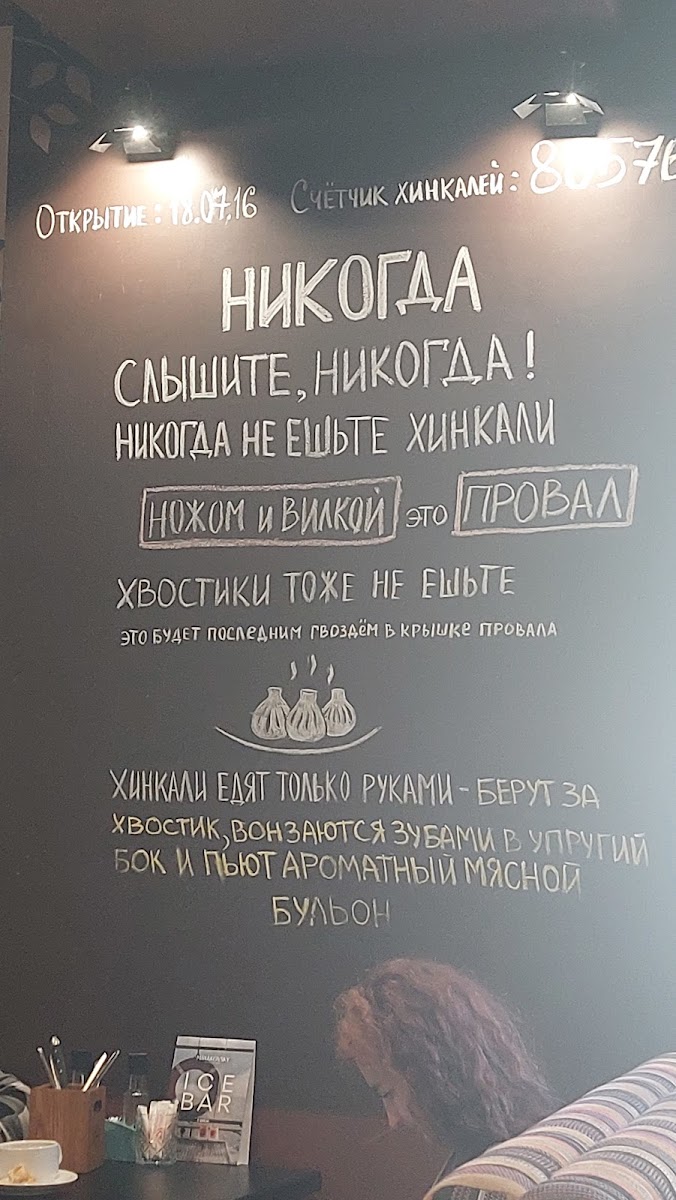 Открытие: 18.07.16 Счётчик хинкалей:
НИКОГДА
СЛЫШИТЕ, НИКОГДА!
НИКОГДА НЕ ЕШЬТЕ ХИНКАЛИ
НОЖОМ И ВИЛКОЙ ЭТО ПРОВАЛ
ХВОСТИКИ ТОЖЕ НЕ ЕШЬТЕ
ЭТО БУДЕТ ПОСЛЕДНИМ ГВОЗДЁМ В КРЫШКЕ ПРОВАЛА
ХИНКАЛИ ЕДЯТ ТОЛЬКО РУКАМИ - БЕРУТ ЗА
ХВОСТИК, ВОНЗАЮТСЯ ЗУБАМИ В УПРУГИЙ
БОК И ПЬЮТ АРОМАТНЫЙ МЯСНОЙ
БУЛЬОН
ICE
BAR